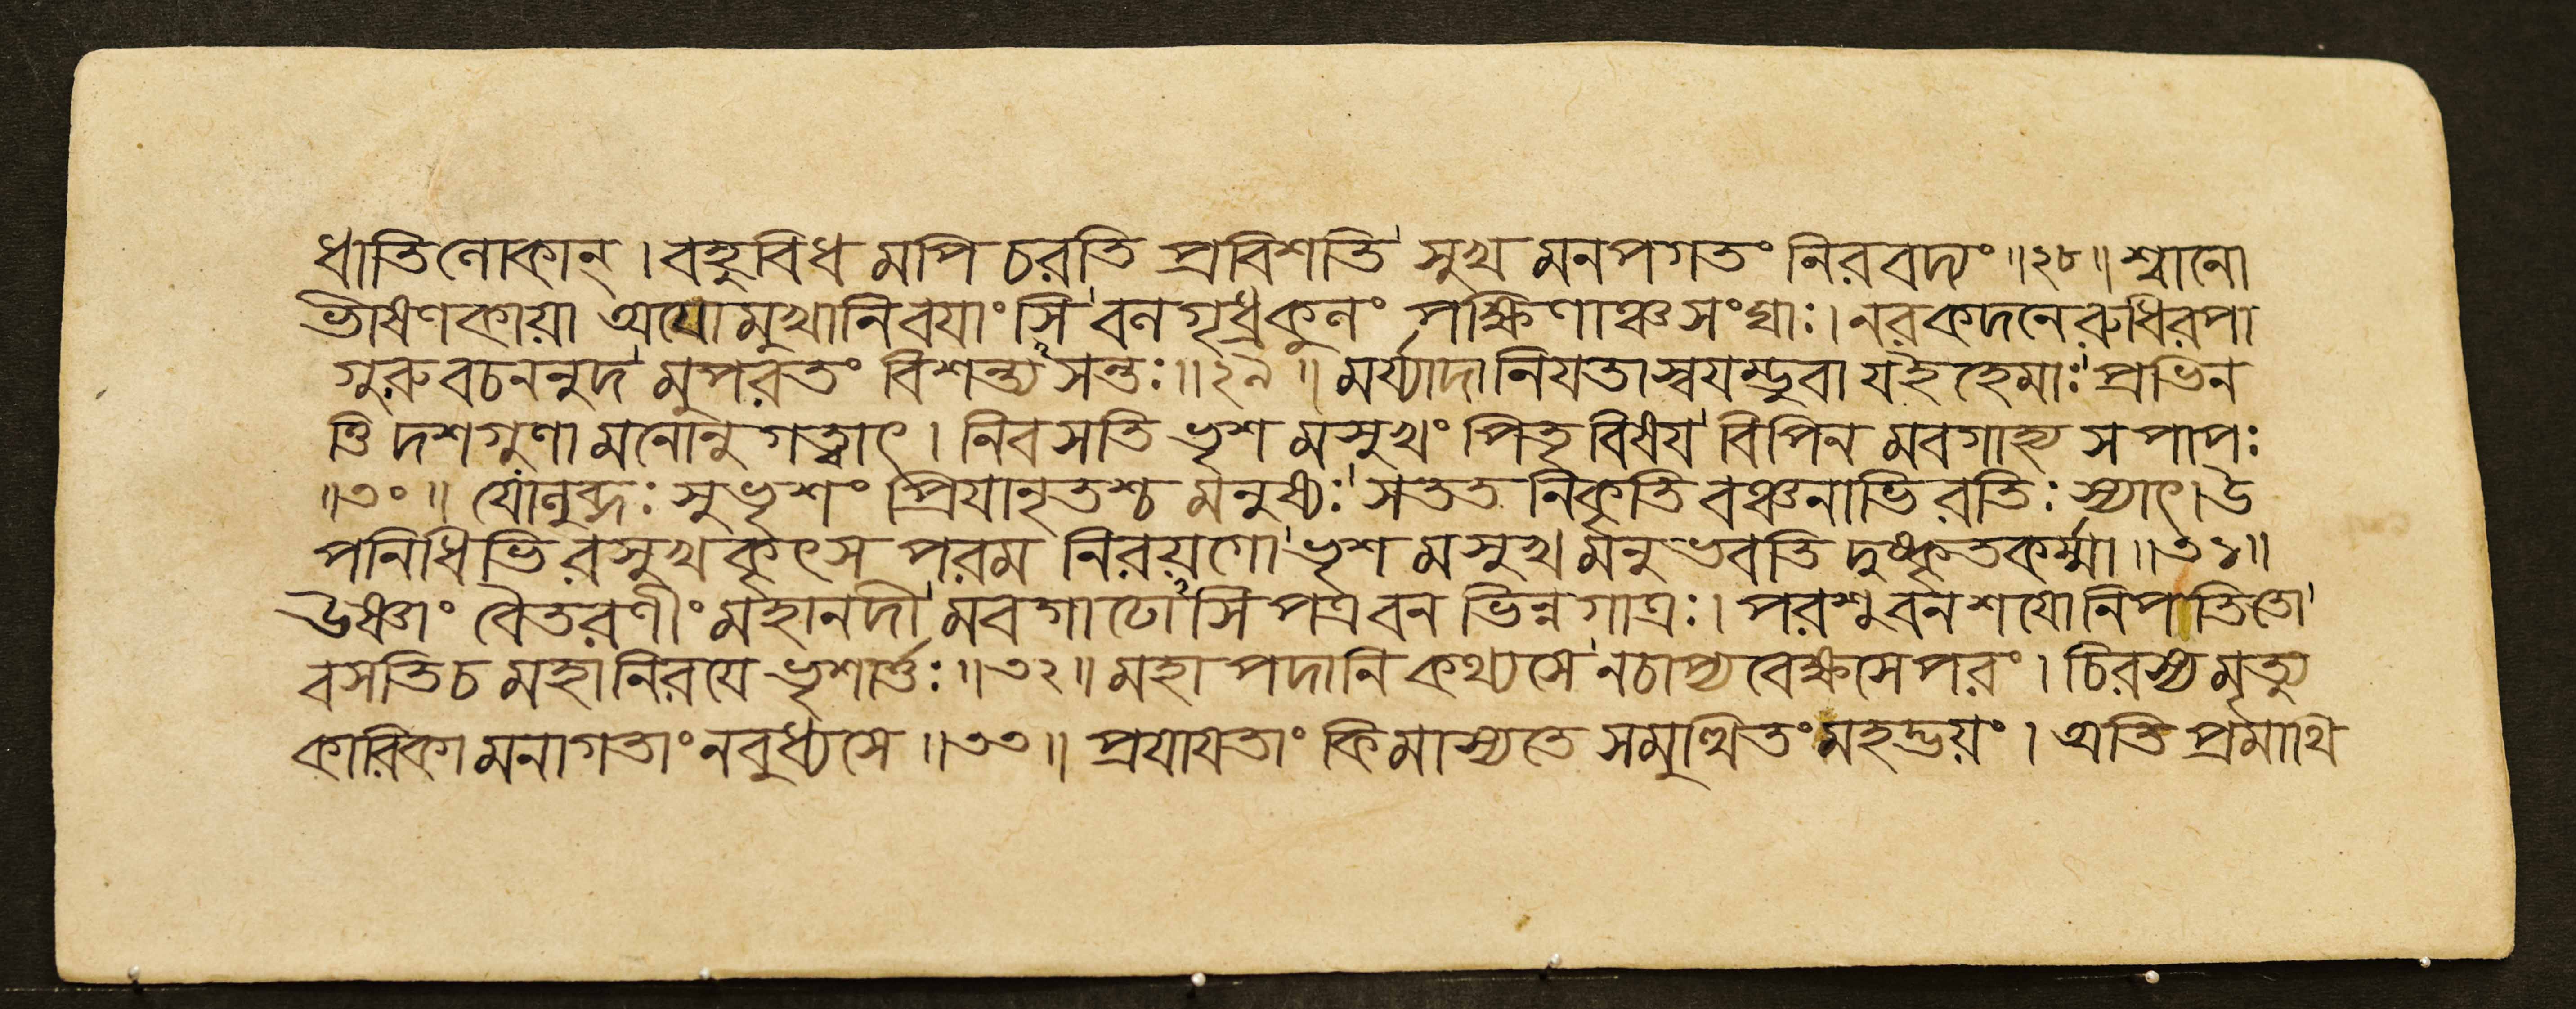 ধাতিলোকান্ । বহুবিধ মপি চরতি প্রবিশতি' সুখ মনপগতং নিরবদ্যং ॥২৮॥ শ্বানো
ভীষণকায়া অযোমুখানিবযাংসি' বলগৃধ্রকুলং পক্ষিণাঞ্চসংঘাঃ । নরকদনে রুধিরপা
গুরুবচননুদ' মুপরতং বিশন্ত্য২সন্তঃ ॥২৯॥ মর্য্যাদানিযতাস্বযম্ভুবা যইহেমাঃ' প্রভিন
ত্তি দশগুণা মনোনুগত্বাৎ । নিবসতি ভৃশ মসুখং পিতৃবিষয' বিপিন মবগাহ্য স পাপঃ
॥৩০॥ যোলুব্ধঃ সুভৃশং প্রিযানৃতশ্চ মনুষ্যঃ' সতত নিকৃতি বঞ্চনাভি রতিঃ স্যাৎ। উ
পনিধিভি রসুখকৃৎস পরম নিরয়গো' ভৃশ মসুখ মনুভবতি দুষ্কৃতকর্ম্মা ॥৩১॥
উষ্ণাং বৈতরণীং মহানদী' মবগাঢো২সি পত্রবন ভিন্ন গাত্রঃ । পরশুবনশযোনিপতিতো'
বসতি চ মহানিরযে ভৃশার্ত্তঃ ॥৩২॥ মহা পদানি কথ্যসে' নচাপ্যবেক্ষসেপরং । চিরস্য মৃত্যু
কারিকা মনাগতাং নবুধ্যসে ॥৩৩॥ প্রযাযতাং কিমাস্যতে সমুত্থিতং মহদ্ভয়ং । অতি প্রমাথি